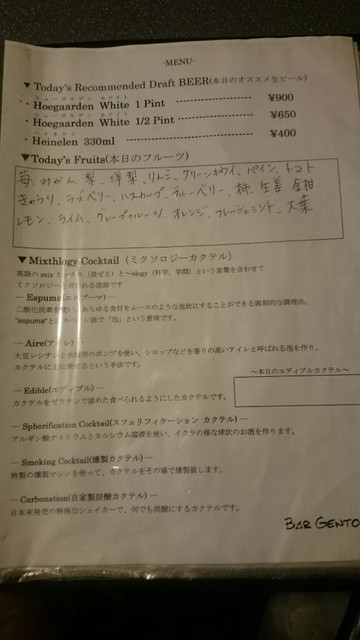 ·MENU·
▼Today's Recommended Draft BEER(本日のオススメ生ビール)
ヒューガルデン ホワイト
・Hoegaarden White 1 Pint ---------------- ¥900
ヒューガルデン ホワイト
・Hoegaarden White 1/2 Pint ------------- ¥650
ハイネケン
・Heinelen 330ml ---------------- ¥400
▼Today's Fruits(本日のフルーツ)
苺、みかん、梨、洋梨、りんご、グリーンキウイ、パイン、トマト
きゅうり、ラズベリー、ハスカップ、ブルーベリー、柿、生姜、金柑
レモン、ライム、グレープフルーツ、オレンジ、フレッシュミント、大葉
▼Mixthlogy Cocktail (ミクソロジーカクテル)
英語の mix ミックス (混ぜる) と~ology (科学、学問) という言葉を合わせて
ミクソロジーと言われる造語です
··· Espuma(エスプーマ) ···
二酸化炭素を使い、あらゆる食材をムースのような泡状にすることができる画期的な調理法。
"espuma"とはスペイン語で「泡」という意味です。
··· Aire(アイレ) ···
大豆レシチンと水槽用のポンプを使い、シロップなどを香りの高いアイレと呼ばれる泡を作り、
カクテルに上に乗せるという手法です。
··· Edible(エディブル) ···
カクテルをゼラチンで固めた食べられるようにしたカクテルです。
~本日のエディブルカクテル~
··· Spherification Cocktail(スフェリフィケイション カクテル) ···
アルギン酸ナトリウムとカルシウム溶液を使い、イクラの様な球状のお酒を作ります。
··· Smoking Cocktail(燻製カクテル) ···
特製の燻製マシンを使って、カクテルをその場で燻製致します。
··· Carbonation(自家製炭酸カクテル) ···
日本未発売の特殊なシェイカーで、何でも炭酸にするカクテルです。
BAR GENTO